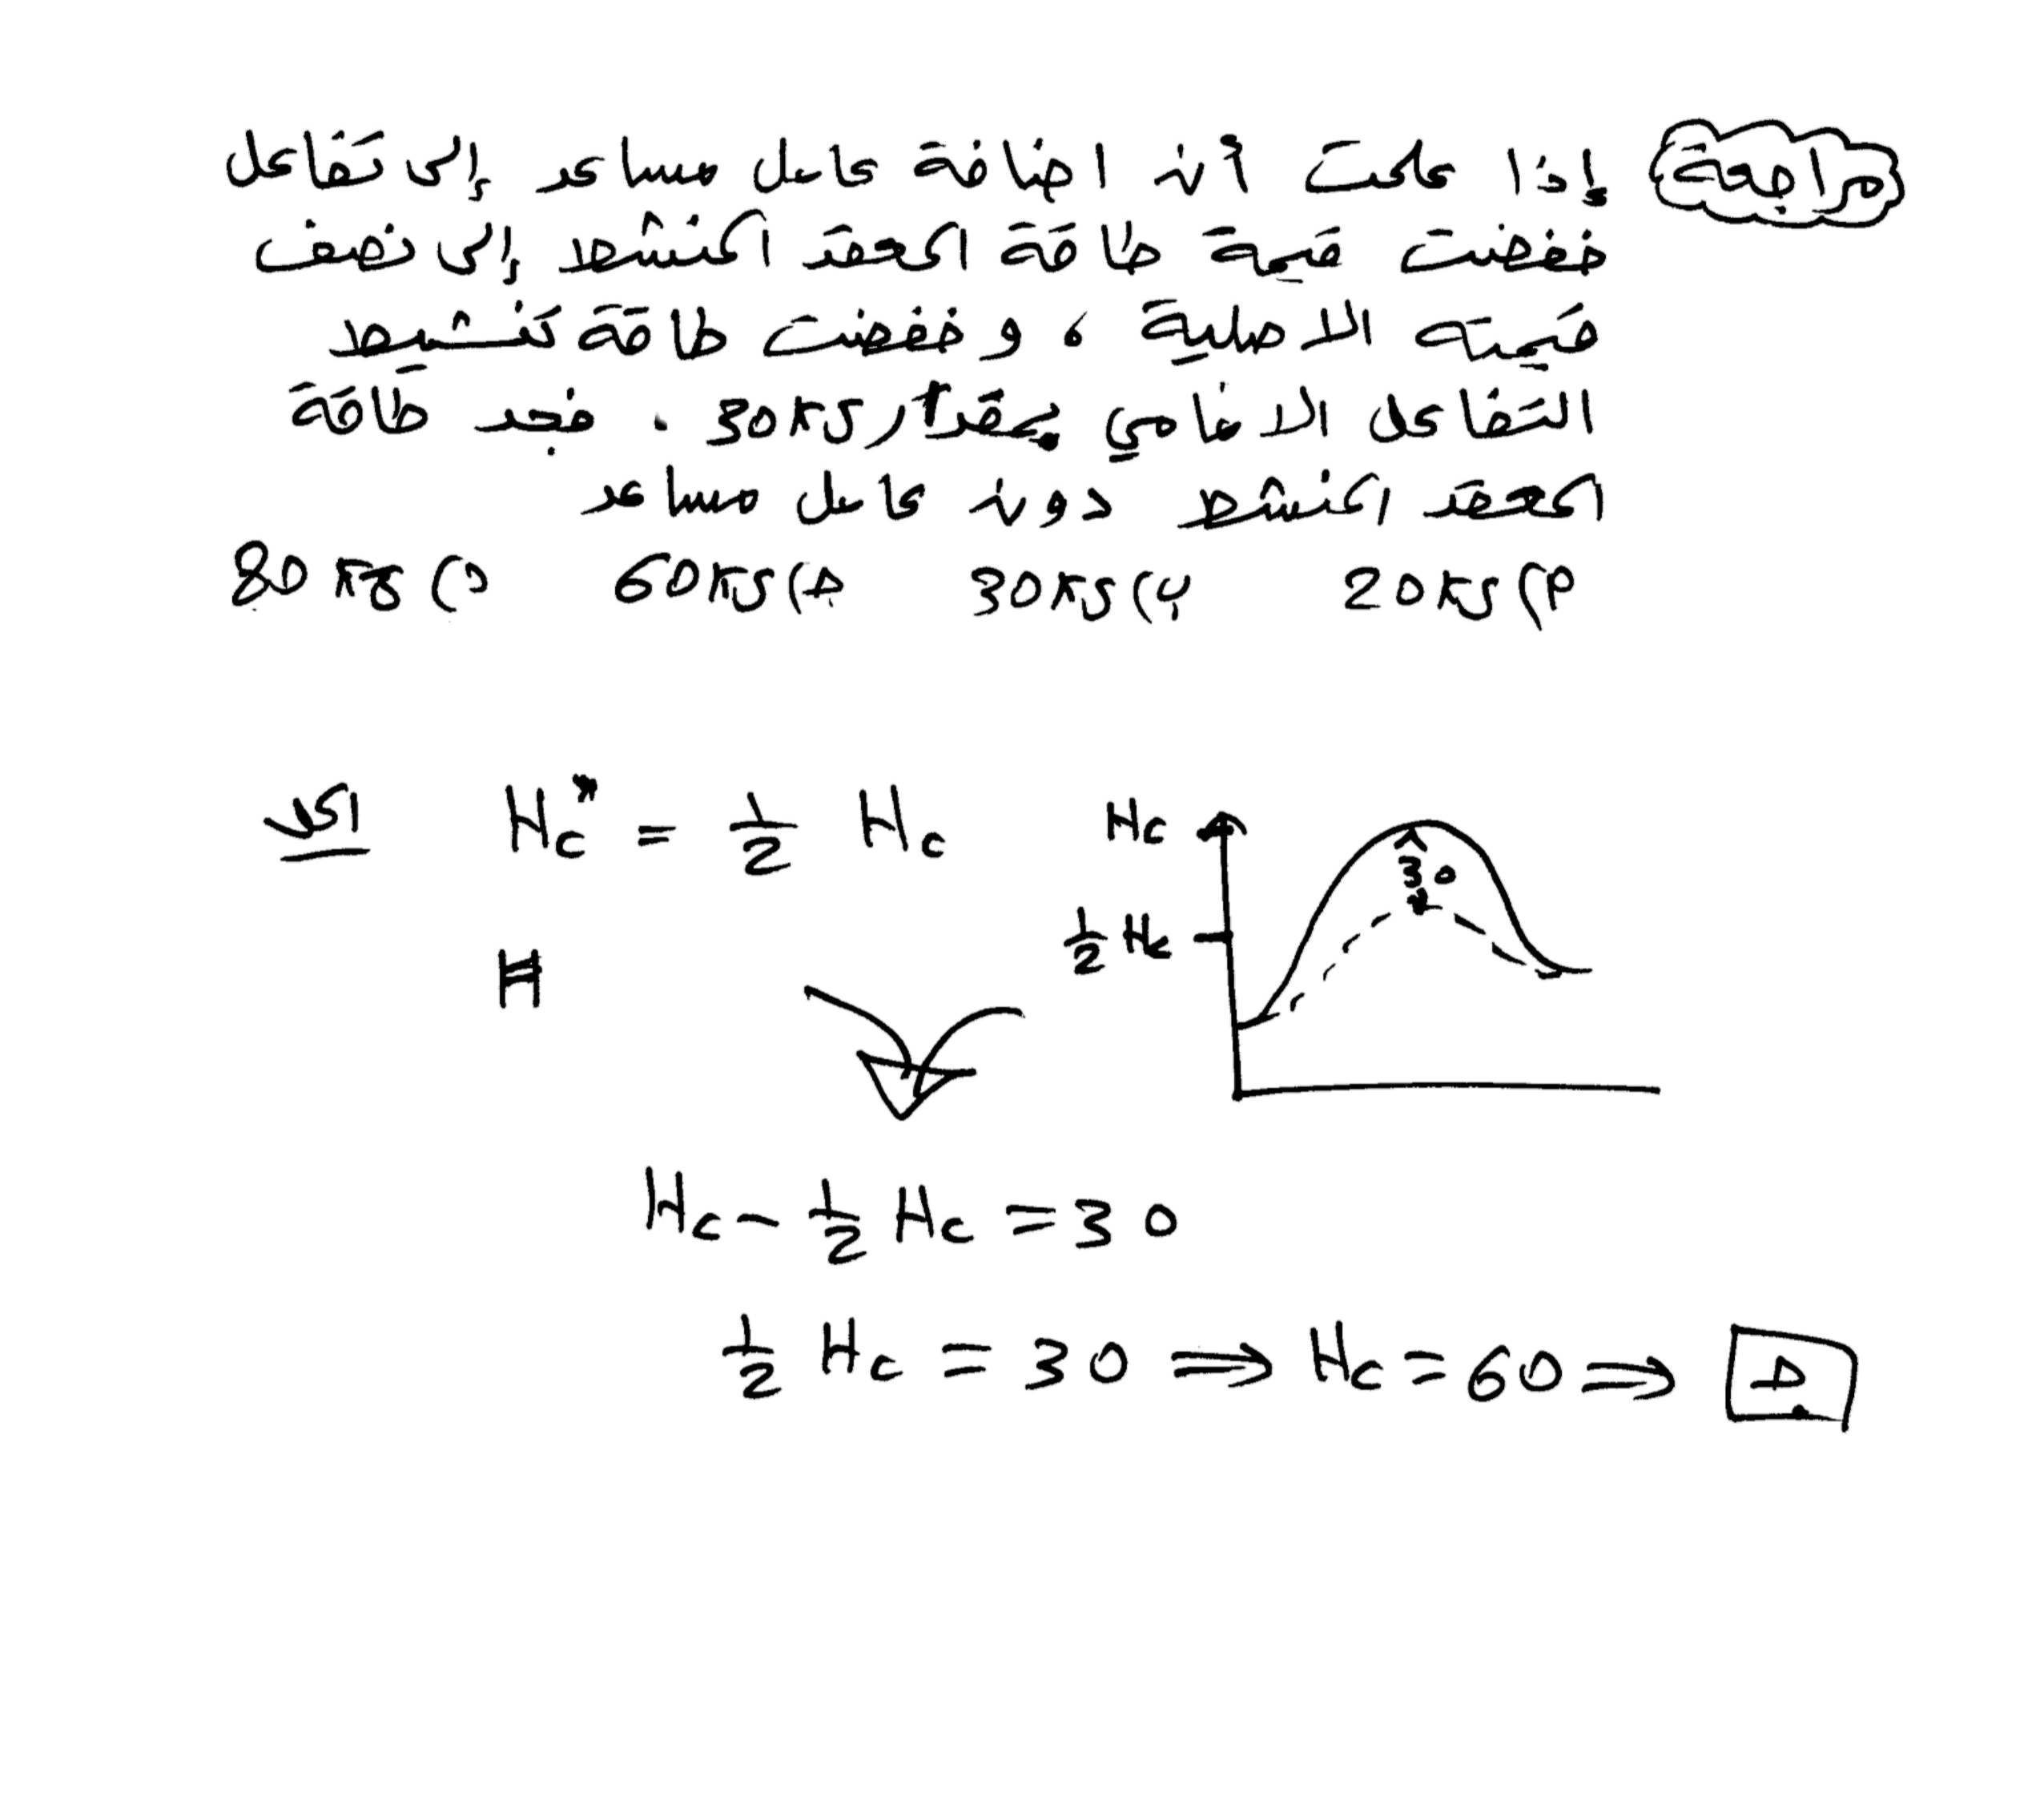 مراجعة
إذا علمت أن اضافة عامل مساعد إلى تفاعل
خفضت قيمة طاقة المعقد المنشط إلى نصف
قيمته الاصلية ، و خفضت طاقة تنشيط
التفاعل الامامي بمقدار 30KJ . فجد طاقة
المعقد المنشط دون عامل مساعد
أ) 20KJ ب) 30KJ ج) 60KJ د) 80KJ
الحل Hc* = 1/2 Hc
Hc
30
1/2 Hc
H
Hc - 1/2 Hc = 30
1/2 Hc = 30 ⇒ Hc = 60 ⇒ ج